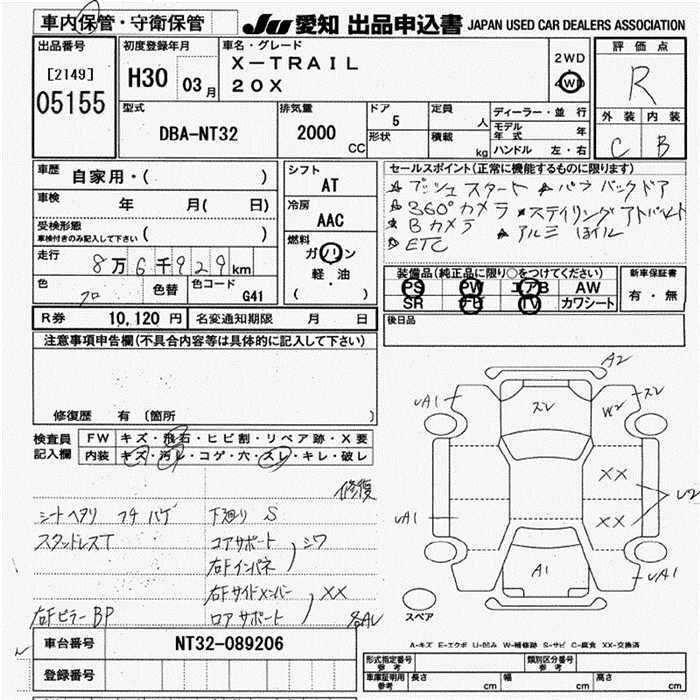 車内保管・守衛保管
JU 愛知 出品申込書 JAPAN USED CAR DEALERS ASSOCIATION
出品番号
[2149]
05155
初度登録年月
H30 03月
車名・グレード
X-TRAIL
20X
2WD
4WD
評価点
R
外装 内装
C B
型式
DBA-NT32
排気量
2000 CC
ドア
5
形状
定員
人
積載
kg
ディーラー・並行
モデル年式 年
ハンドル 左・右
車歴
自家用・( )
車検
年 月( 日)
受検形態
車検付きのみ記入して下さい ( )
走行
8万6千929km
色
クロ
色替
色コード
G41
シフト
AT
冷房
AAC
燃料
ガソリン
軽・油
( )
セールスポイント(正常に機能するものに限ります)
プッシュスタート パワーバックドア
360°カメラ ステイリングアトバルト
Bカメラ アルミホイル
ETC
装備品(純正品に限り○をつけてください)
PS PW エアB AW
SR ナビ TV カワシート
新車保証書
有・無
後日品
R券 10,120円 名変通知期限 月 日
注意事項申告欄(不具合内容等は具体的に記入して下さい)
修復歴 有 〔箇所 〕
検査員記入欄
FW キズ・飛石・ヒビ割・リペア跡・X要
内装 キズ・汚レ・コゲ・穴・スレ・キレ・破レ
修復
シートヘタリ フチハゲ 下廻り S
スタッドレスT コアサポート シワ
右Fインパネ
右Fサイドメンバー XX
右FピラーBP ロアサポート 各AL
A2
UA1
ズレ
ズレ
W2
XX
XX
U2
UA1
A1
UA1
スペア
A-キズ E-エクボ U-凹み W-補修跡 S-サビ C-腐食 XX-交換済
車台番号 NT32-089206
登録番号
形式指定番号 参考
類別区分番号 参考
車庫証明用 参考 長さ cm 幅 cm 高さ cm